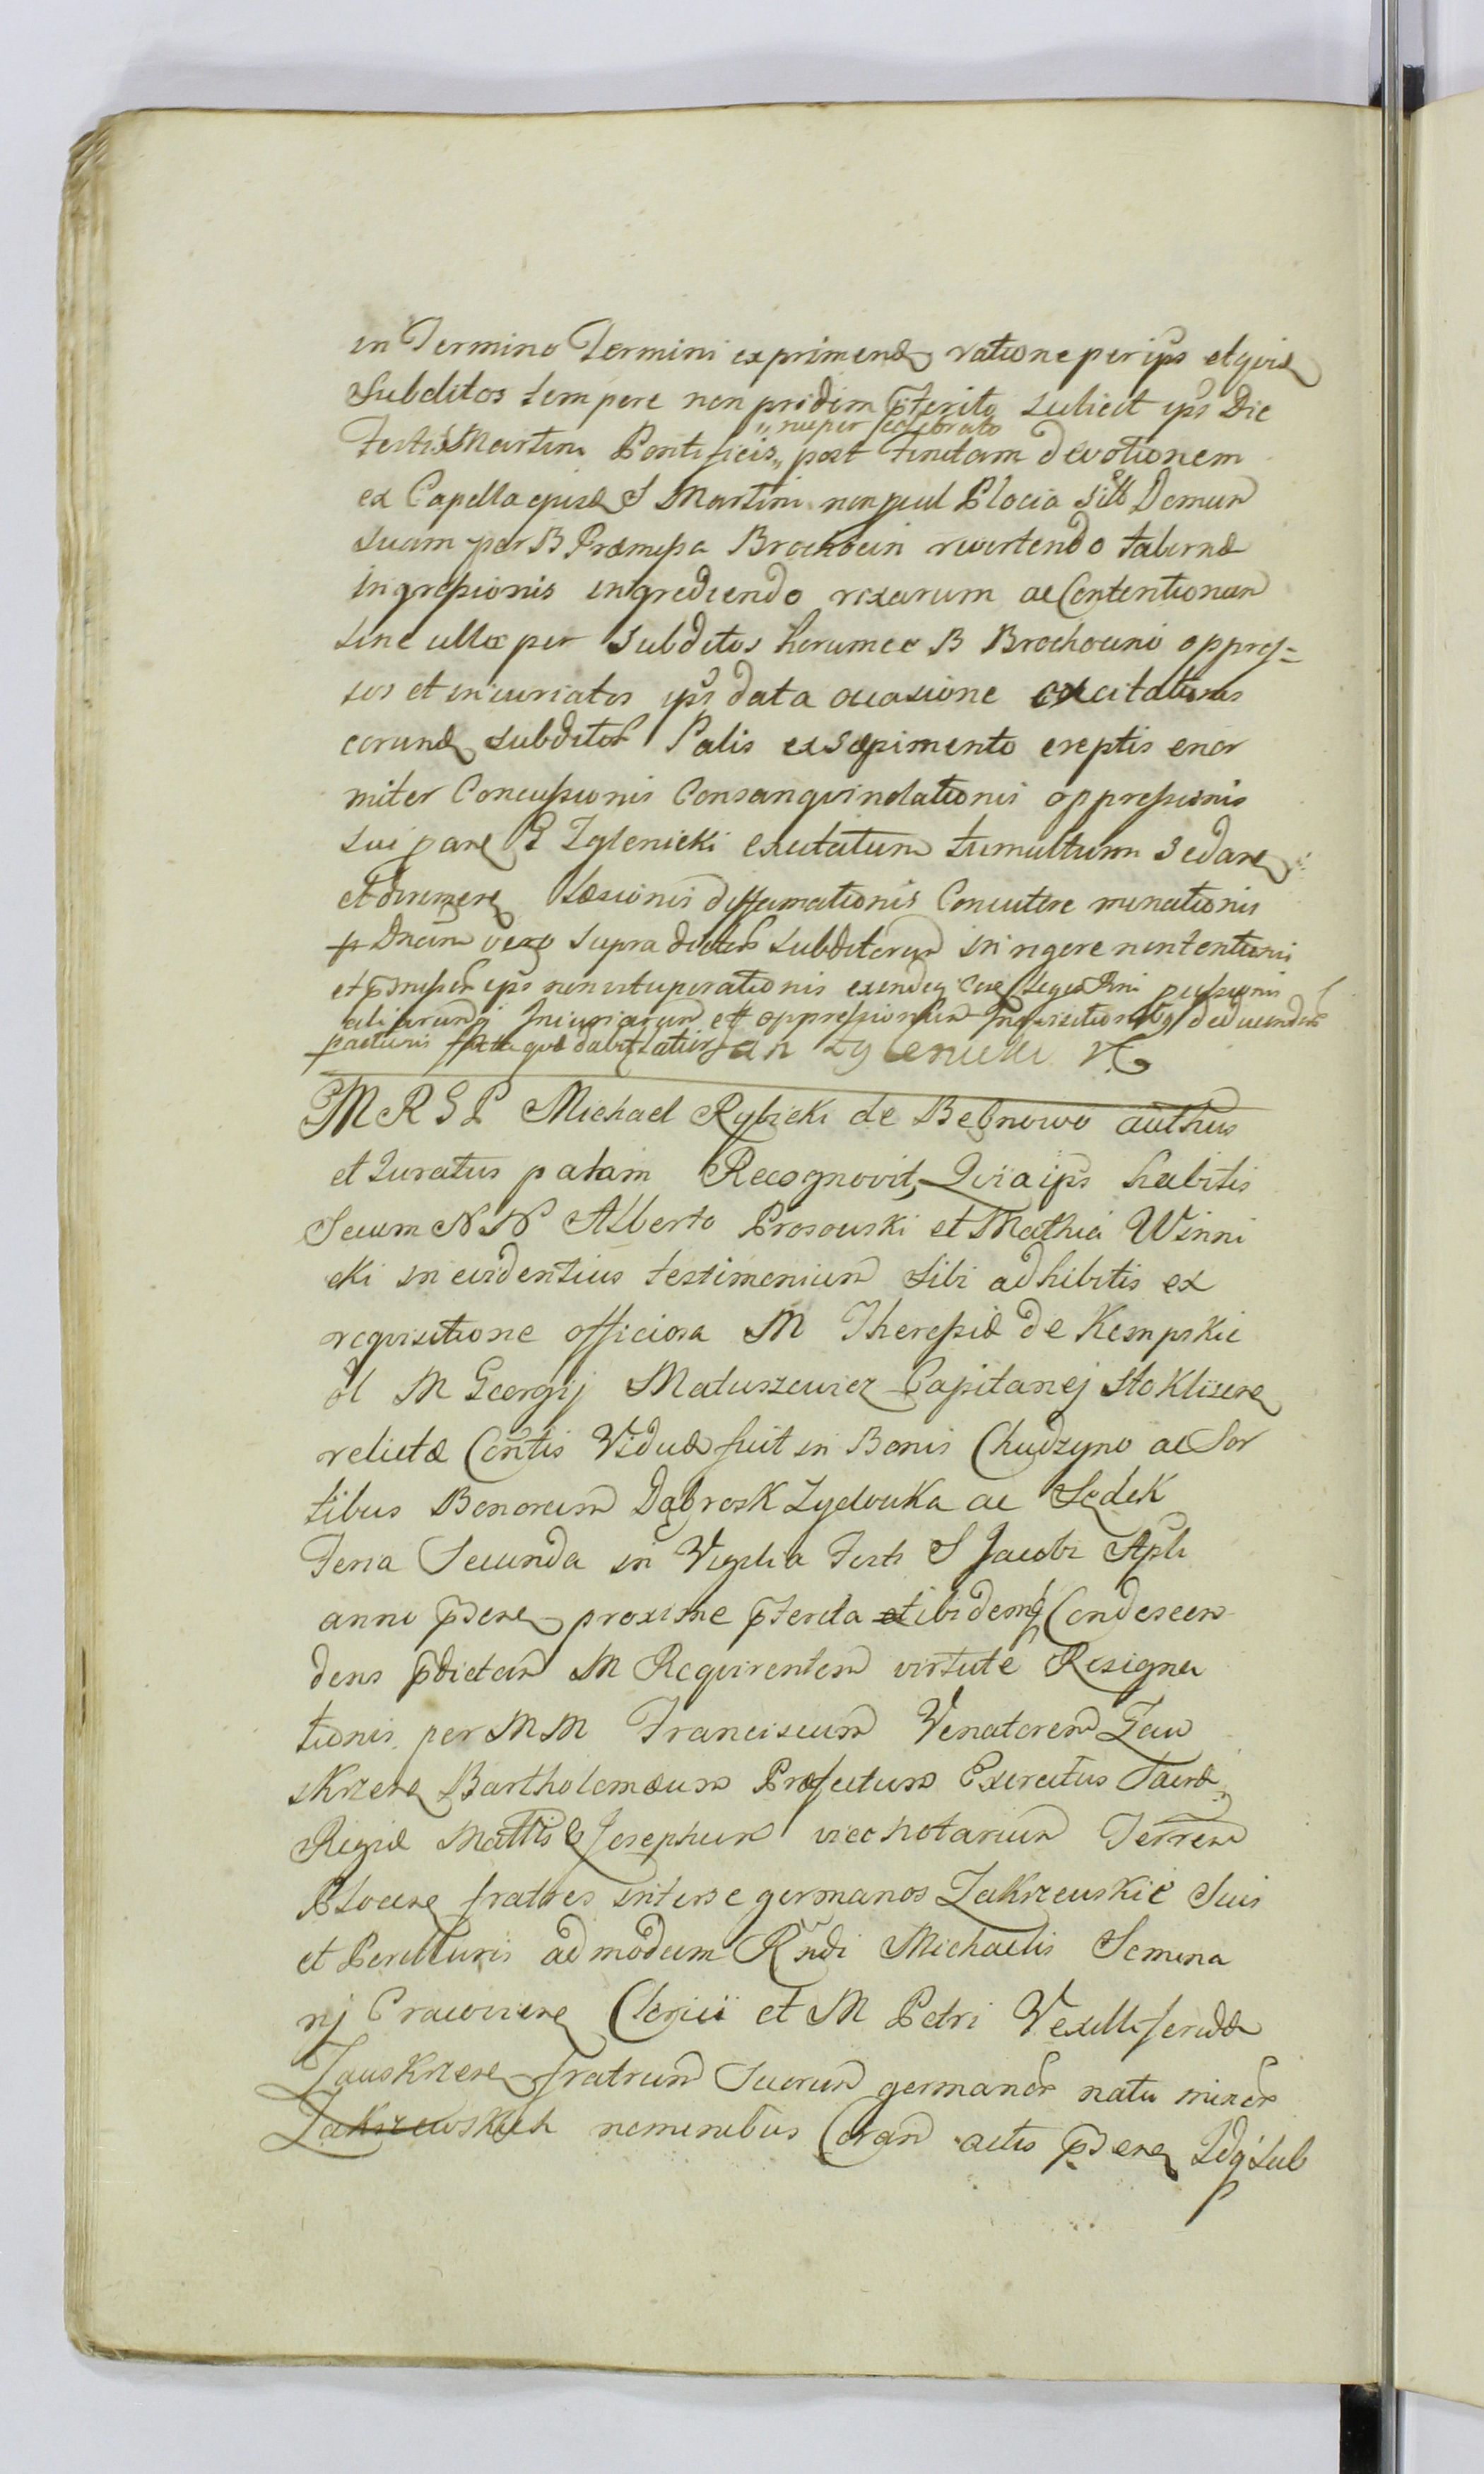 in Termino Termini exprimend ratione per ips et qvia
Subditos tempore non pridem pterito scilicet ips Die
"nuper celebrato
Festi S Martini Pontificis,, post finitam devotionem
ex Capella ejusd S Martini non procul Plocia sitt Domum
suam per B Præmissa Brochocin revertendo tabernæ
ingressionis ingrediendo rixarum ac Contentionum
sine ulla per Subditos horumce B Brochocino oppres=
sos et iniuriatos ips data occasione excitationis
eorund subditor Palis ex sæpimento ereptis enor
miter Concussionis Consangvinolationis oppressionis
sui parte G Zglenicki excitatum tumultum sedare
et dirimere Læsionis diffamationis Concutere minationis
Dnam vero supra dictor subditorum in rigore non tentionis
et ips non vituperationis
aliarumq Iniuriarum et oppressionum Inqvisitionibus deducendor
pacturis qvæ dabitur latius Jan Zglenicki
M R S P Michael Rybicki de Bebnowo authus
et Juratus palam Recognovit, Qvia ips habitis
Secum N N Alberto Brosowski et Mathia Winni
cki in evidentius testimonium sibi adhibitis ex
reqvisitione officiosa M Theressiæ de Kempskie
ol M Georgij Matuszewicz Capitanej Stoklisere
relictæ Contis Viduæ fuit in Bonis Chudzyno ac Sor
tibus Bonorum Dąbrosk Zydowka ac Sędek
Feria Secunda in Vigilia Festi S Jacobi Apli
anni psere proxime pterita et ibidemq Condescen
dens pdictam M Reqvirentem virtute Resigna
tionis per M M Franciscum Venatorem Zaw
skrzere Bartholomæum Præfectum Exercitus Sacræ
Regiæ Mattis & Josephum vicenotarium Terrem
Plocere fratres inter se germanos Zakrzewskie Suis
et admodum Rndi Michaelis Semina
rij Cracoviere Clerici et M Petri Vexilliferidæ
Zawskrzere fratrum Suorum germanor natu minor
Zakrzewskich nominibus Coram actis psere Idq sub